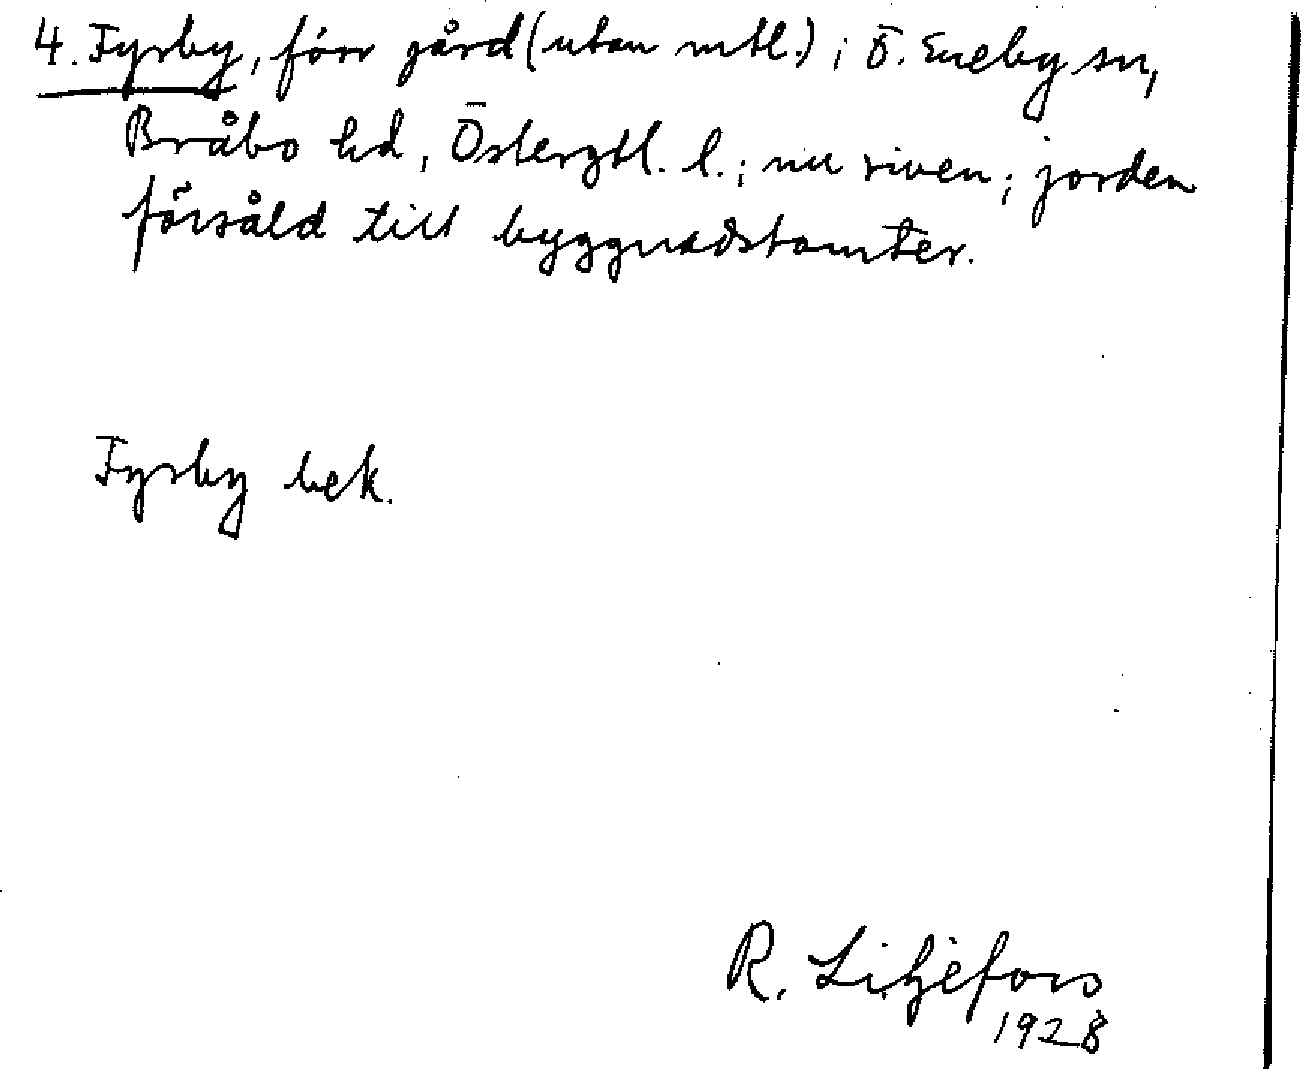 4. Fyrby, förr gård (utan mtl.) i Ö. Eneby sn,
Bråbo hd, Östergtl. l.; nu riven; jorden
försåld till byggnadstomter.
Fyrby bek.
R. Liljefors
1928